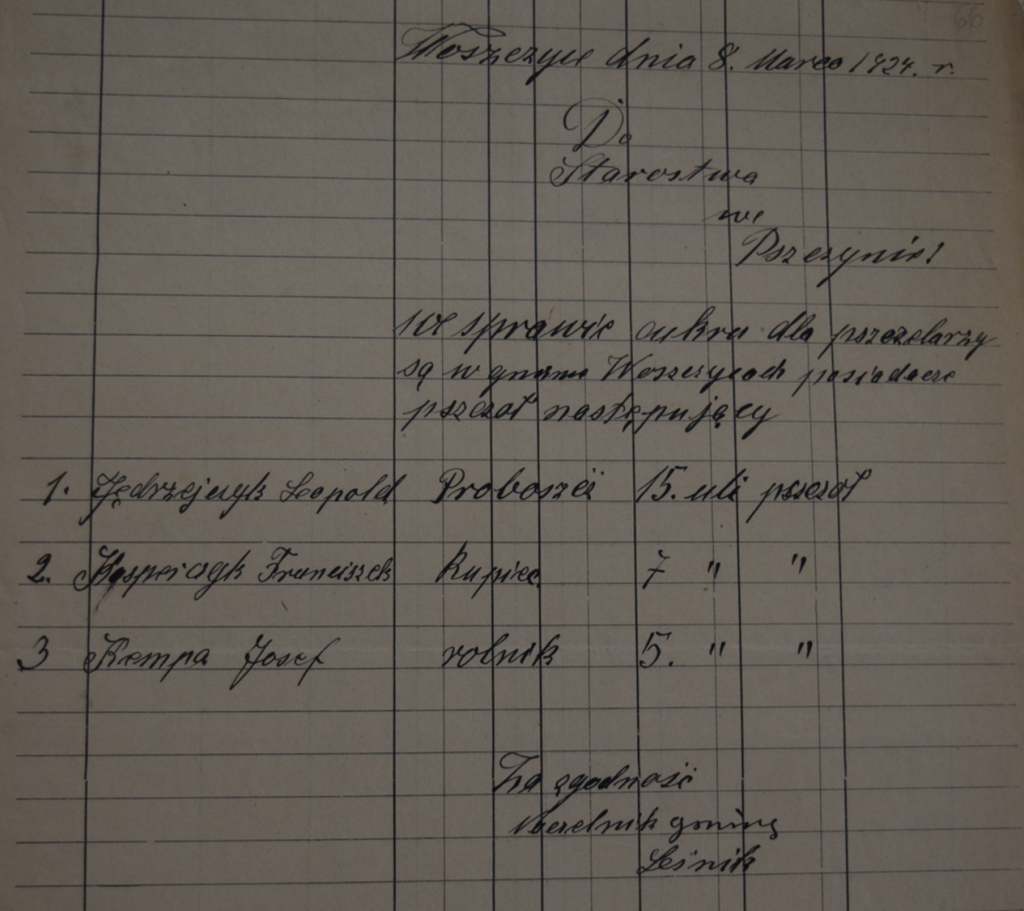 66
Woszczyce dnia 8. Marca 1924. r.
Do
Starostwa
we
Pszczynie!
We sprawie cukru dla pszczelarzy
są w gminie Woszczycach posiadacze
pszczół następujący
1. Jędrzejczyk Leopold Proboszcz 15. uli pszczół
2. Kasperczyk Franciszek Kupiec 7 " "
3 Kempa Josef rolnik 5. " "
Za zgodność
Naczelnik gminy
Leśnik